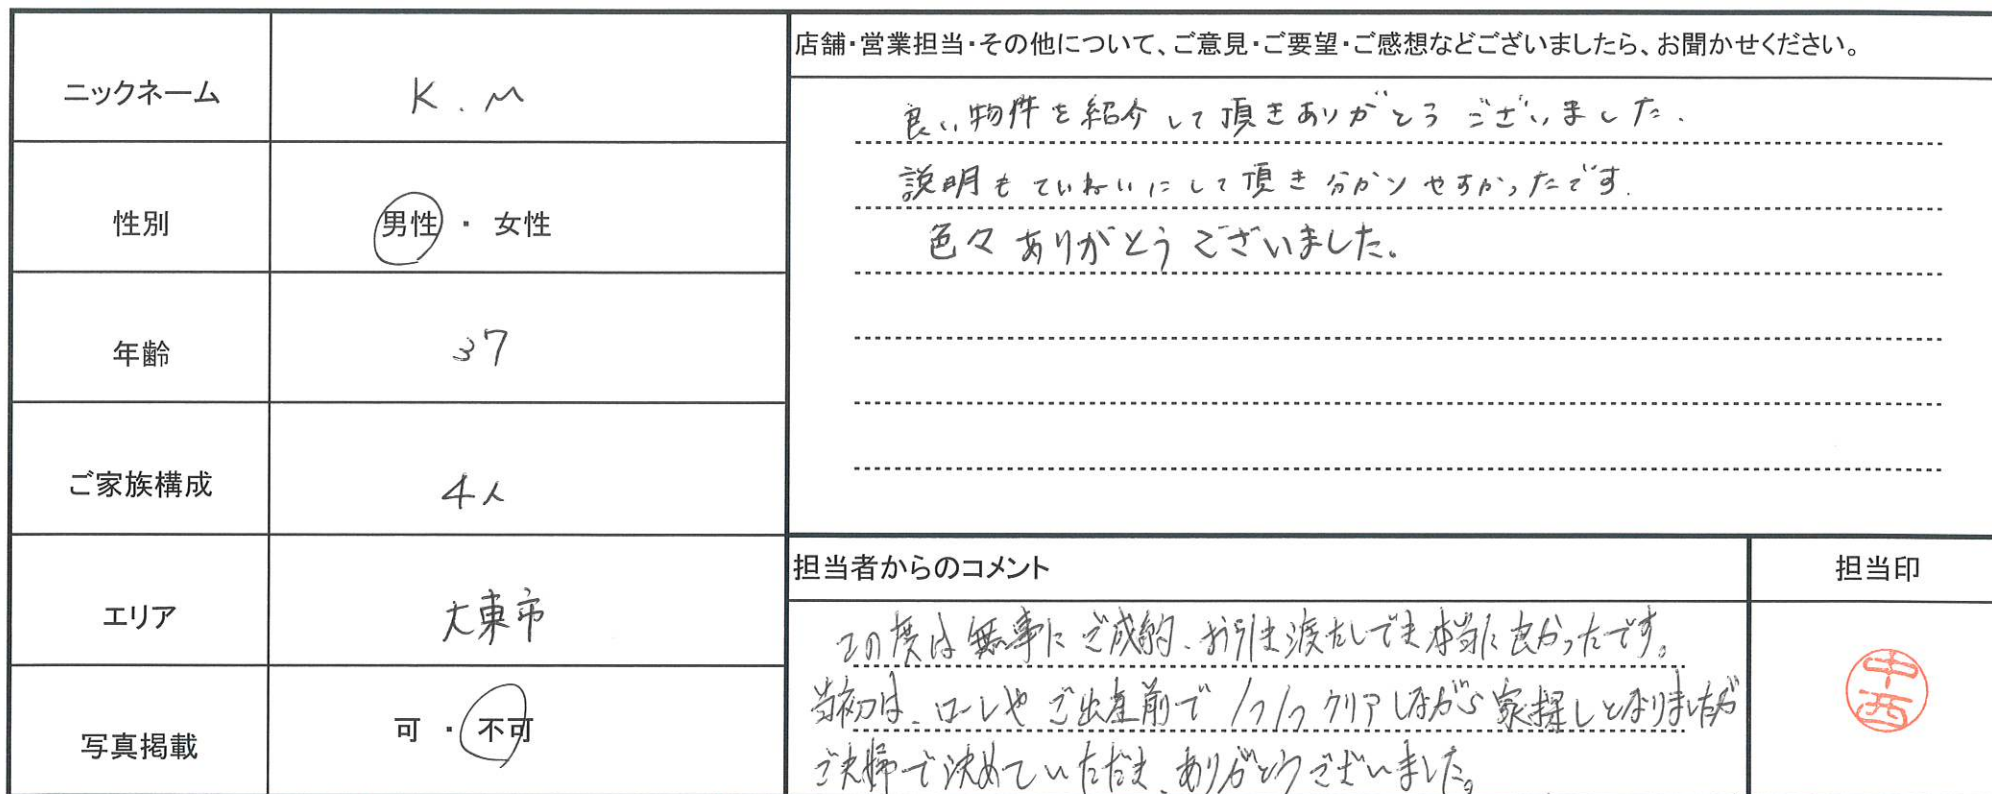 ニックネーム
K.M
性別
男性 ・ 女性
年齢
37
ご家族構成
4人
エリア
大東市
写真掲載
可 ・ 不可
店舗・営業担当・その他について、ご意見・ご要望・ご感想などございましたら、お聞かせください。
良い物件を紹介して頂きありがとうございました.
説明もていねいにして頂き分かりやすかったです.
色々ありがとうございました。
担当者からのコメント
この度は無事にご成約、お引き渡しでき本当に良かったです。
当初は、ローンやご出産前で1つ1つクリアしながら家探しとなりましたが
ご夫婦で決めていただき、ありがとうございました。
担当印
中西